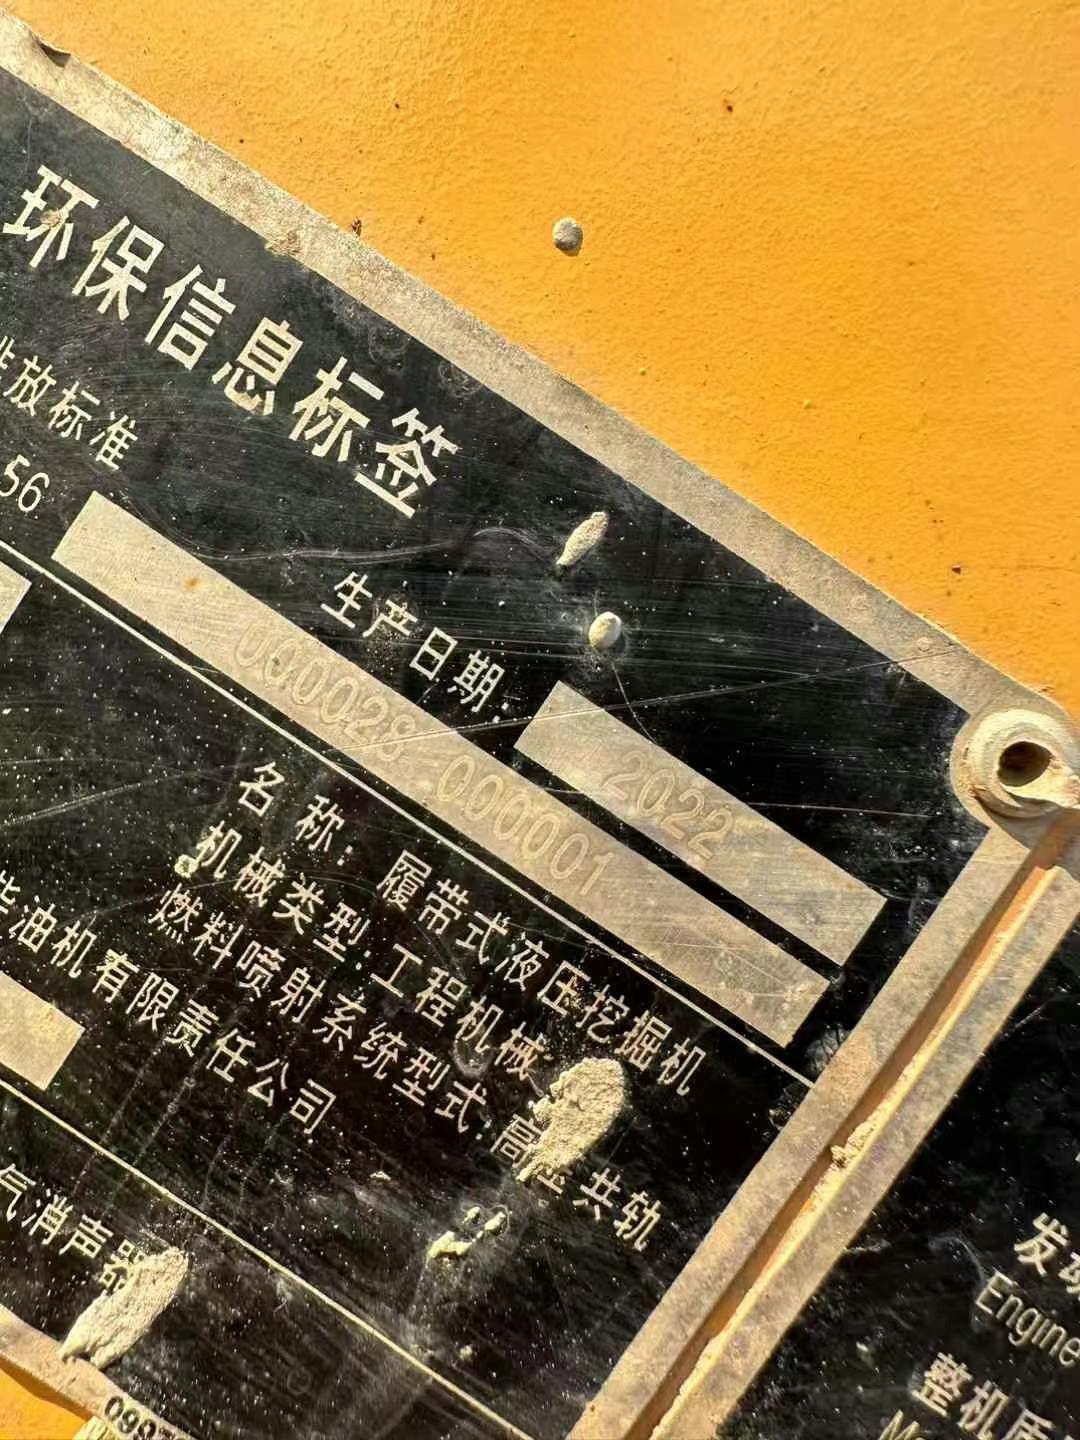 环保信息标签
放标准
56
生产日期:
2022
000028 000001
名 称: 履带式液压挖掘机
机械类型:工程机械
燃料喷射系统型式:高压共轨
柴油机有限责任公司
气消声器
发动
Engine
整机质